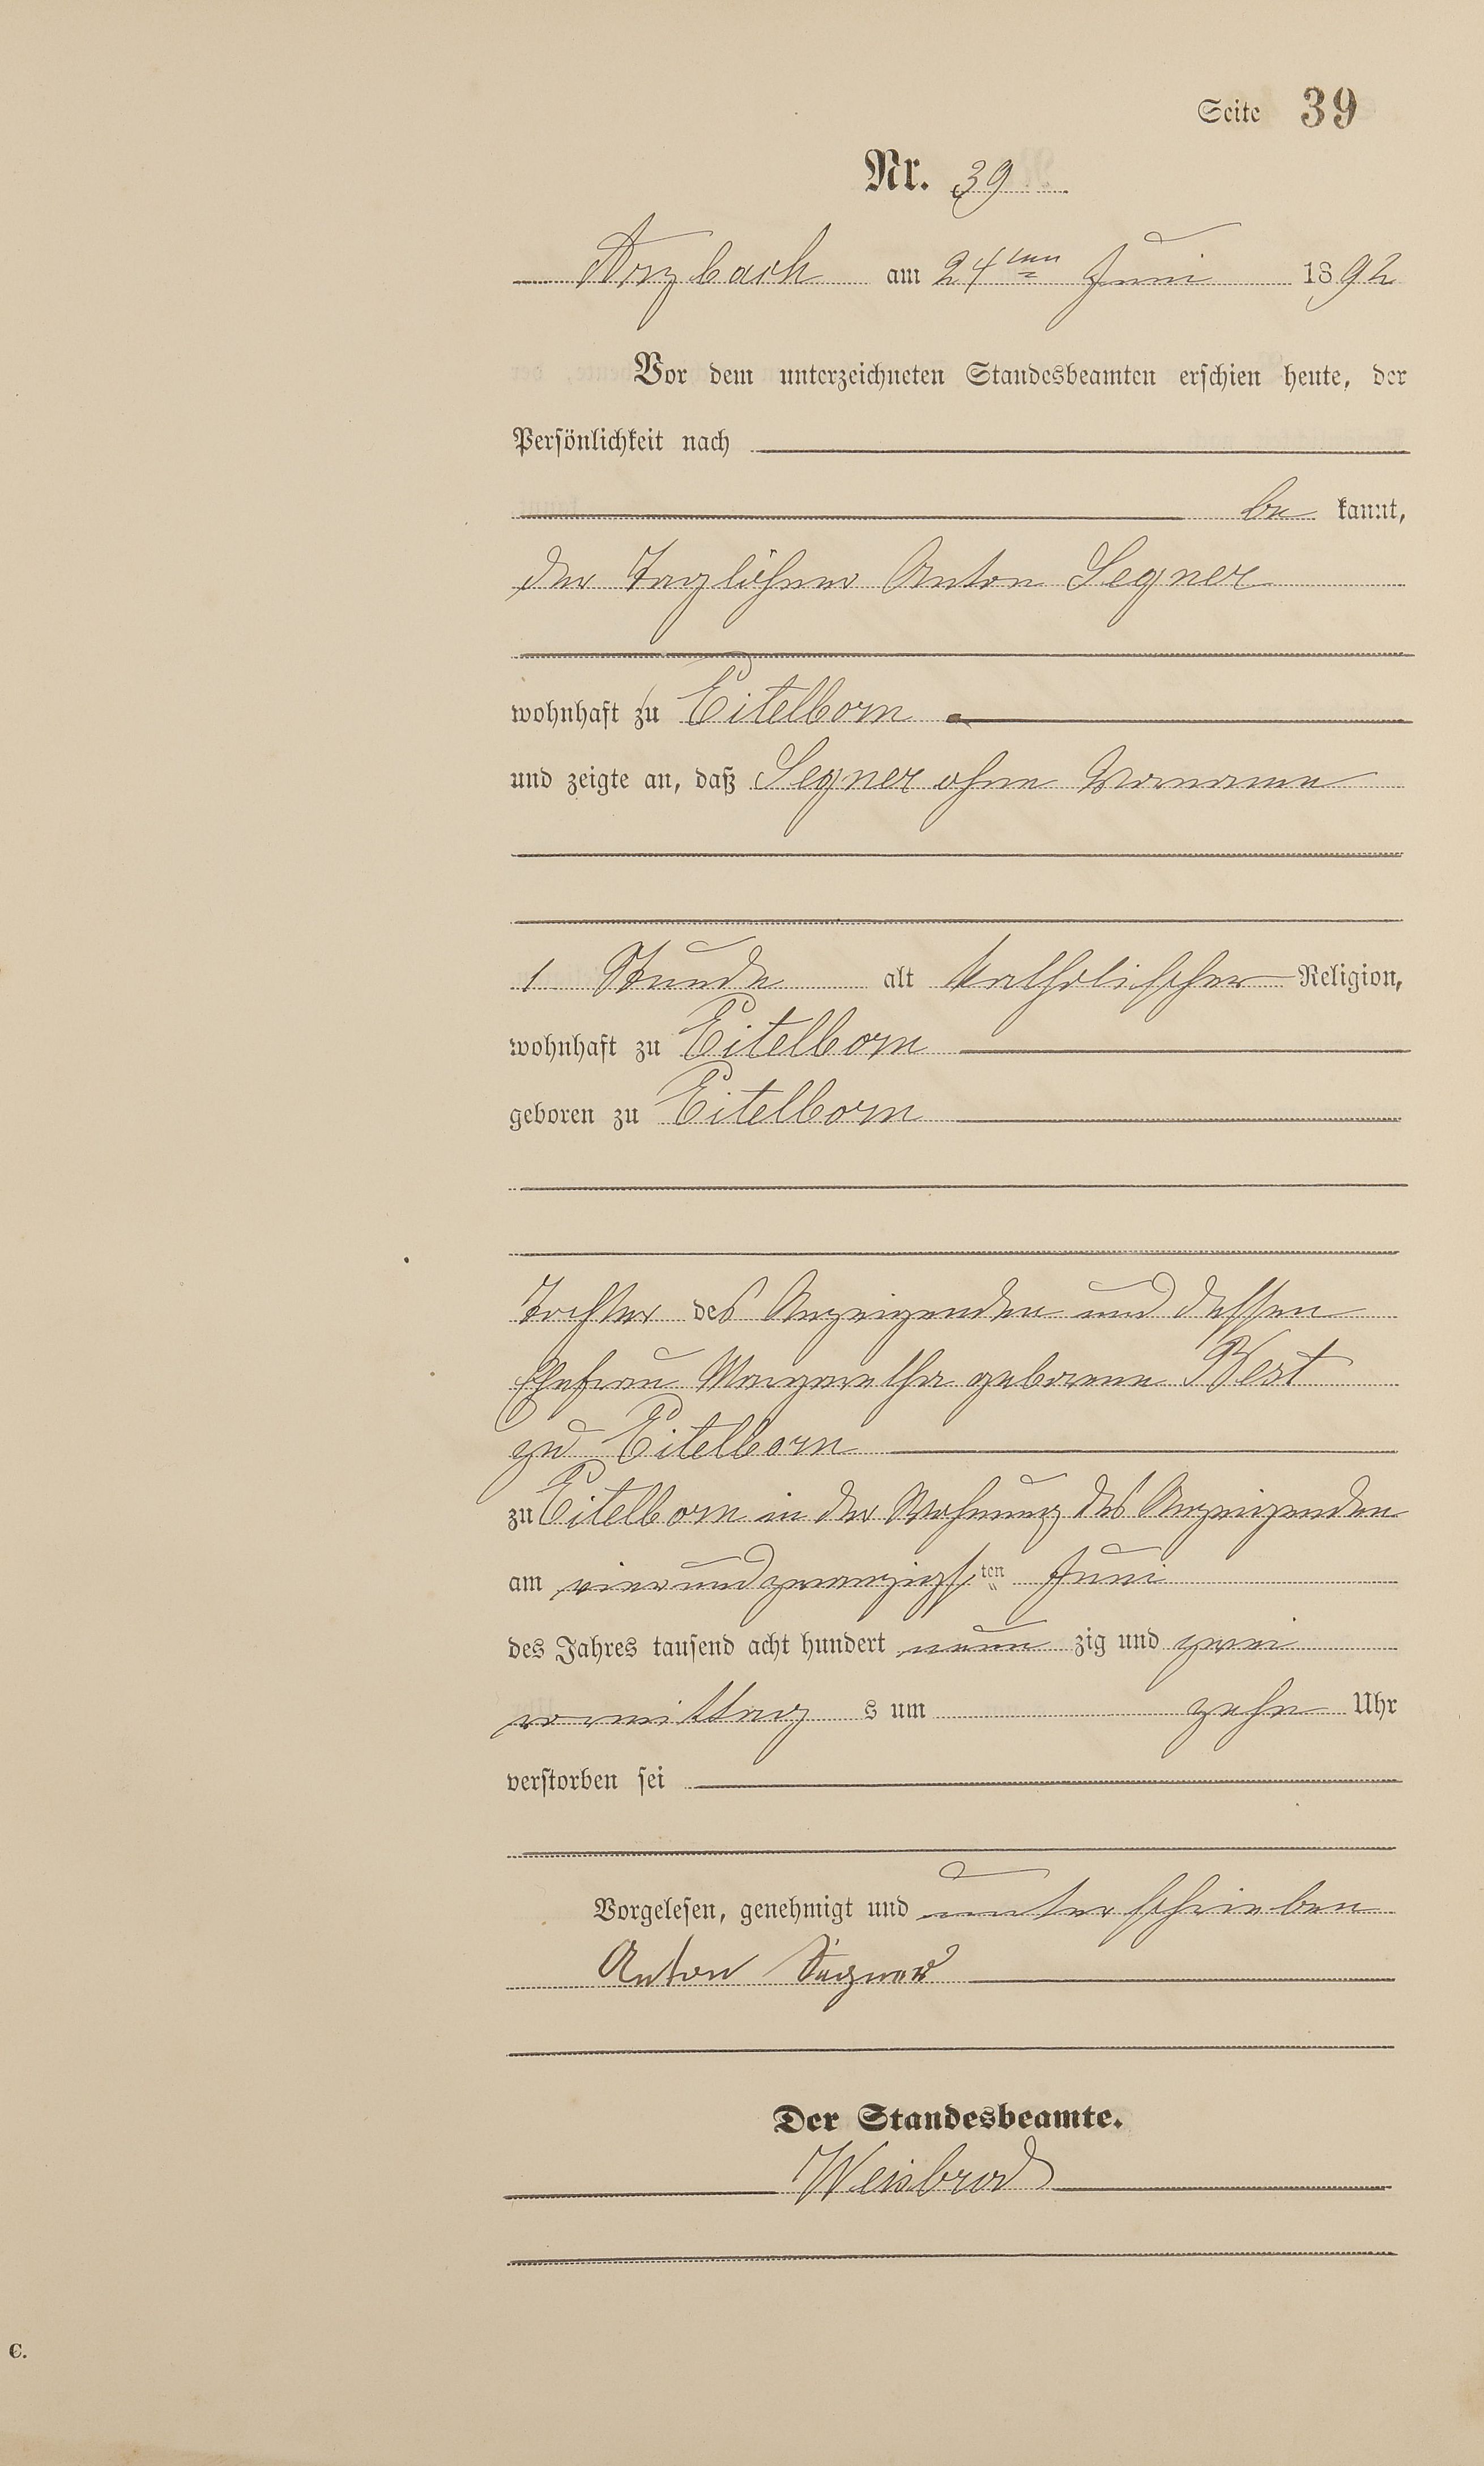 Seite 39
Nr. 39
Arzbach am 24ten Juni 1892
Vor dem unterzeichneten Standesbeamten erschien heute, der
Persönlichkeit nach
be kannt,
der Taglöhner Anton Segner
wohnhaft zu Eitelborn
und zeigte an, daß Segner ohne Vorname
1 Stunde alt katholischer Religion,
wohnhaft zu Eitelborn
geboren zu Eitelborn
Tochter des Anzeigenden und dessen
Ehefrau Margaretha geborene Best
zu Eitelborn
zu Eitelborn in der Wohnung des Anzeigenden
am vierundzwanzigsten Juni
des Jahres tausend acht hundert neun zig und zwei
vormittag s um zehn Uhr
verstorben sei
Vorgelesen, genehmigt und unterschrieben
Anton Segner
Der Standesbeamte.
Weisbrod
C.